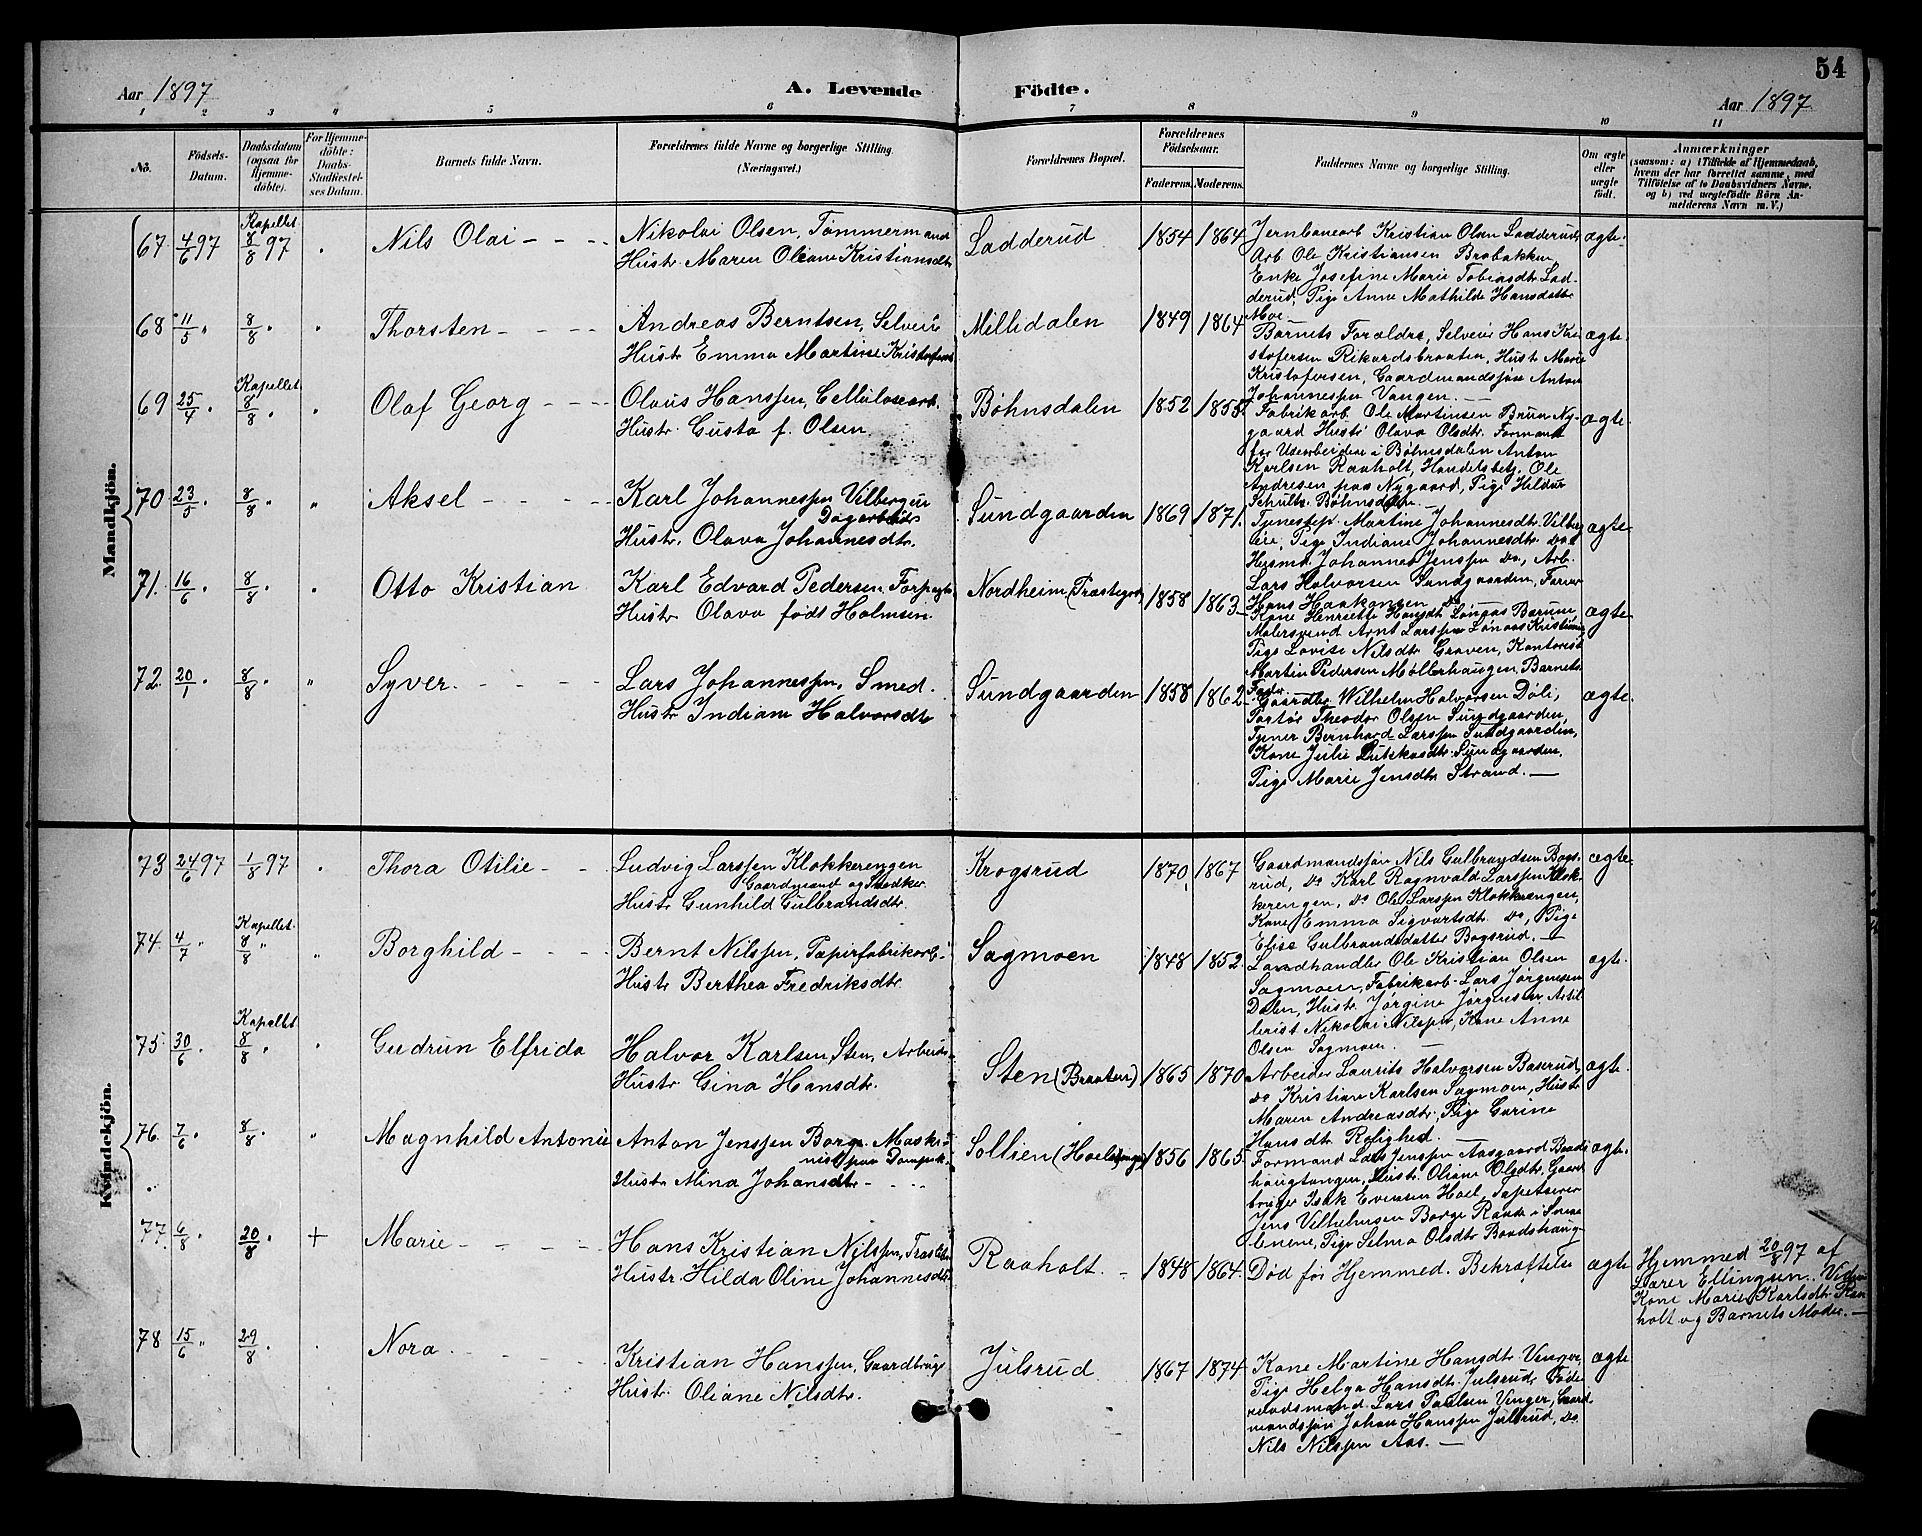 54
Aar 1897
A. Levende Födte.
Aar 1897
1 2 3 4 5 6 7 8 9 10 11
No.
Födsels-Datum.
Daabsdatum (ogsaa for Hjemmedöbte).
For Hjemmedöbte: Daabs-Stadfæstelses Datum.
Barnets fulde Navn.
Forældrenes fulde Navne og borgerlige Stilling. (Næringsvei.)
Forældrenes Bopæl.
Forældrenes Födselsaar.
Faderens.
Moderens.
Faddernes Navne og borgerlige Stilling.
Om ægte eller uægte födt.
Anmærkninger
(saasom: a) i Tilfælde af Hjemmedaab, hvem der har forrettet samme, med Tilföielse af to Daabsvidners Navne, og b) ved uægtefödte Börn Anmelderens Navn m. V.)
Mandkjön.
67 4/6 97 Kapellet 8/8 97 Nils Olai
Nikolai Olsen, Tømmermand
Hustr. Maren Oliane Kristiansdtr
Ladderud 1854 1864 ægte
Jernbanearb Kristian Olsen Ladderud,
Arb Ole Kristiansen Brobakken
Enke Josefine Marie Tobiasdtr Lad-
derud, Pige Anne Mathilde Hansdatter
Moe
68 11/5 " 8/8 " " Thorsten
Andreas Berntsen, Selveier
Hustr Emma Martine Kristofers
Millidalen 1849 1864 ægte
Barnets Foraldre, Selveier Hans Kri
stofersen Rikardsbraaten, Hustr Marie
Kristofersen, Gaardmandssøn Anton
Johannessen Vangen.
69 25/4 " Kapellet 8/8 " " Olaf Georg
Olaus Hanssen, Cellulosearb.
Hustr. Gusta f. Olsen
Bøhnsdalen 1852 1855 ægte
Fabrikarb Ole Martinsen Brun Ny-
gaard Hustr Olava Olsdtr. Formand
for Udearbeidere i Bøhnsdalen Anton
Karlsen Raaholt, Handelsbetj. Ole
Andresen paa Nygaard, Pige Hilda
Schultz Bøhnsdalen
70 23/5 " 8/8 " " Aksel
Karl Johannessen Vilbergeie
Dagarbeider
Hustr. Olava Johannesdtr.
Sundgaarden 1869 1871. ægte
Tjenestep. Martine Johannesdtr. Vilberg
eie, Pige Indiane Johannesdtr do
Husmd. Johannes Jenssen Do, Arb.
Lars Halvorsen Sundgaarden,
Hans Haakonsen Do
71. 16/6 " 8/8 " Otto Kristian
Karl Edvard Pedersen Forpagter
Hustr Olava født Holmsen.
Nordheim (Præstegrd) 1858 1863 ægte
Kone Henriette Hansdtr Lønaas Bærum
Malersvend Arnt Larssen Lønaas Kristiania
Pige Lovise Nilsdtr Graven, Kontorist
Martin Pedersen Møllerhaugen, Barnets
Fader
72. 20/1 " 8/8 " " Syver.
Lars Johannessen, Smed.
Hustr Indiane Halvorsdtr
Sundgaarden 1858 1862 ægte
Gaardbr Wilhelm Halvorsen Døli,
Theodor Olsen Sundgaarden,
Tjener Bernhard Larssen Sundgaarden,
Kone Julie Sundgaarden.
Pige Marie Jensdtr Strand.
Kvindekjön.
73 24/6 97 1/8 97 Thora Otilie
Ludvig Larssen Klokkerengen
Gaardmand og Snedker
Hustr Gunhild Gulbrandsdtr.
Krogsrud 1870 1867 ægte
Gaardmandssøn Nils Gulbrandsen Bogs-
rud, Do Karl Ragnvald Larssen Klok-
kerengen, Do Ole Larssen Klokkerengen,
Kone Emma Sigvartsdtr Do, Pige
Elise Gulbrandsdatter Bogsrud.
74. 4/7 " Kapellet. 8/8 " " Borghild
Bernt Nilssen, Papirfabrikarb
Hustr Berthea Fredriksdtr.
Sagmoen 1848 1852 ægte.
Landhandler Ole Kristian Olsen
Sagmoen, Fabrikarb. Lars Jørgensen
Dalen, Hustr Jørgine Jørgensen Artil-
lerist Nikolai Nilssen, Kone Anne
Olsen Sagmoen.
75. 30/6 " Kapellet 8/8 " " Gudrun Elfrida
Halvor Karlsen, Sten, Arbeider
Hustr Gina Hansdtr.
Sten (Braaten) 1865 1870 ægte.
Arbeider Laurits Halvorsen Baserud,
Do Kristian Karlsen Sagmoen, Hustr
Maren Andreasdtr, Pige Garine
Hansdtr Rolighed.
76. 7/6 " 8/8 " " Magnhild Antonie
Anton Jenssen Borge Maski-
nist paa Dampsk.
Hustr Mina Johansdtr
Sollien 1856 1865 ægte.
Formand Lars Jenssen Aasgaard Baads
haugtangen, Hustr. Oliane Olsdtr, Gaard
bruger Isak Evensen Hoel, Tapetserer
Jens Vilhelmsen Borge Raade i Smaa-
lenene, Pige Selma Olsdtr Baadshaug-
77. 6/8 " 20/8 " + Marie
Hans Kristian Nilssen,
Hustr. Hilda Oline Johannesdtr
Raaholt. 1848 1864. ægte
Død før Hjemmed. Bekræftelse
Hjemmed 20/8 97 af
Lærer Ellingsen. Vidner
Kone Marie Karlsdtr Raa-
holt og Barnets Moder.
78 15/6 " 29/8 Nora
Kristian Hanssen, Gaardbrug
Hustr. Oliane Nilsdtr.
Julsrud 1867 1874 ægte
Kone Martine Hansdtr Venger,
Pige Helga Hansdtr Julsrud, Føde
raadsmand Lars Paulsen Venger, Gaard-
mandssøn Johan Hanssen Julsrud, Do
Nils Nilssen Aas.